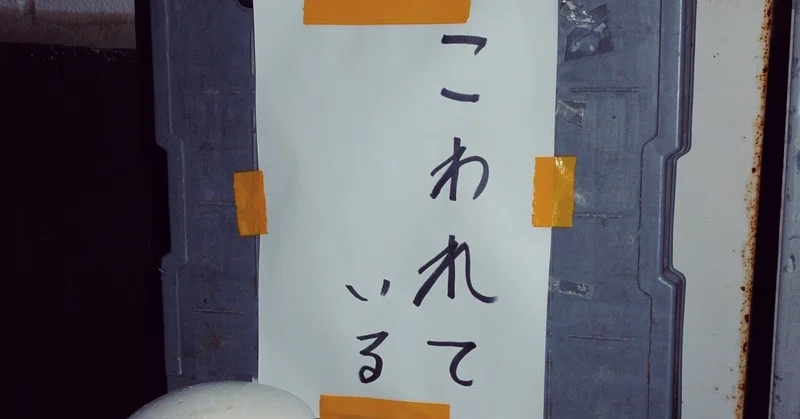 こわれて
いる